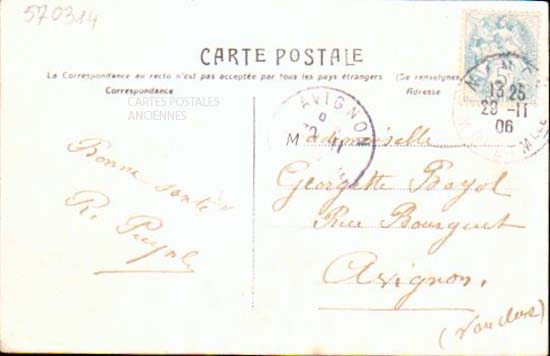 570314
CARTE POSTALE
La Correspondance au recto n'est pas acceptée par tous les pays étrangers (Se renseigner
Correspondance
Adresse
CARTES POSTALES
ANCIENNES
AVIGNON
5
13 25
29 -11
06
Mademoiselle
Georgette Bayol
Rue Bourguet
Avignon.
(Vaucluse)
Bonne santé
R.